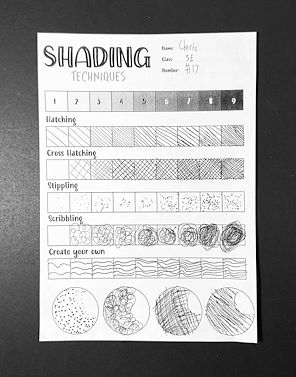 SHADING
TECHNIQUES
Name:
Class
Number: #17
1 2 3 4 5 6 7 8 9
Hatching
Cross Hatching
Stippling
Scribbling
Create your own